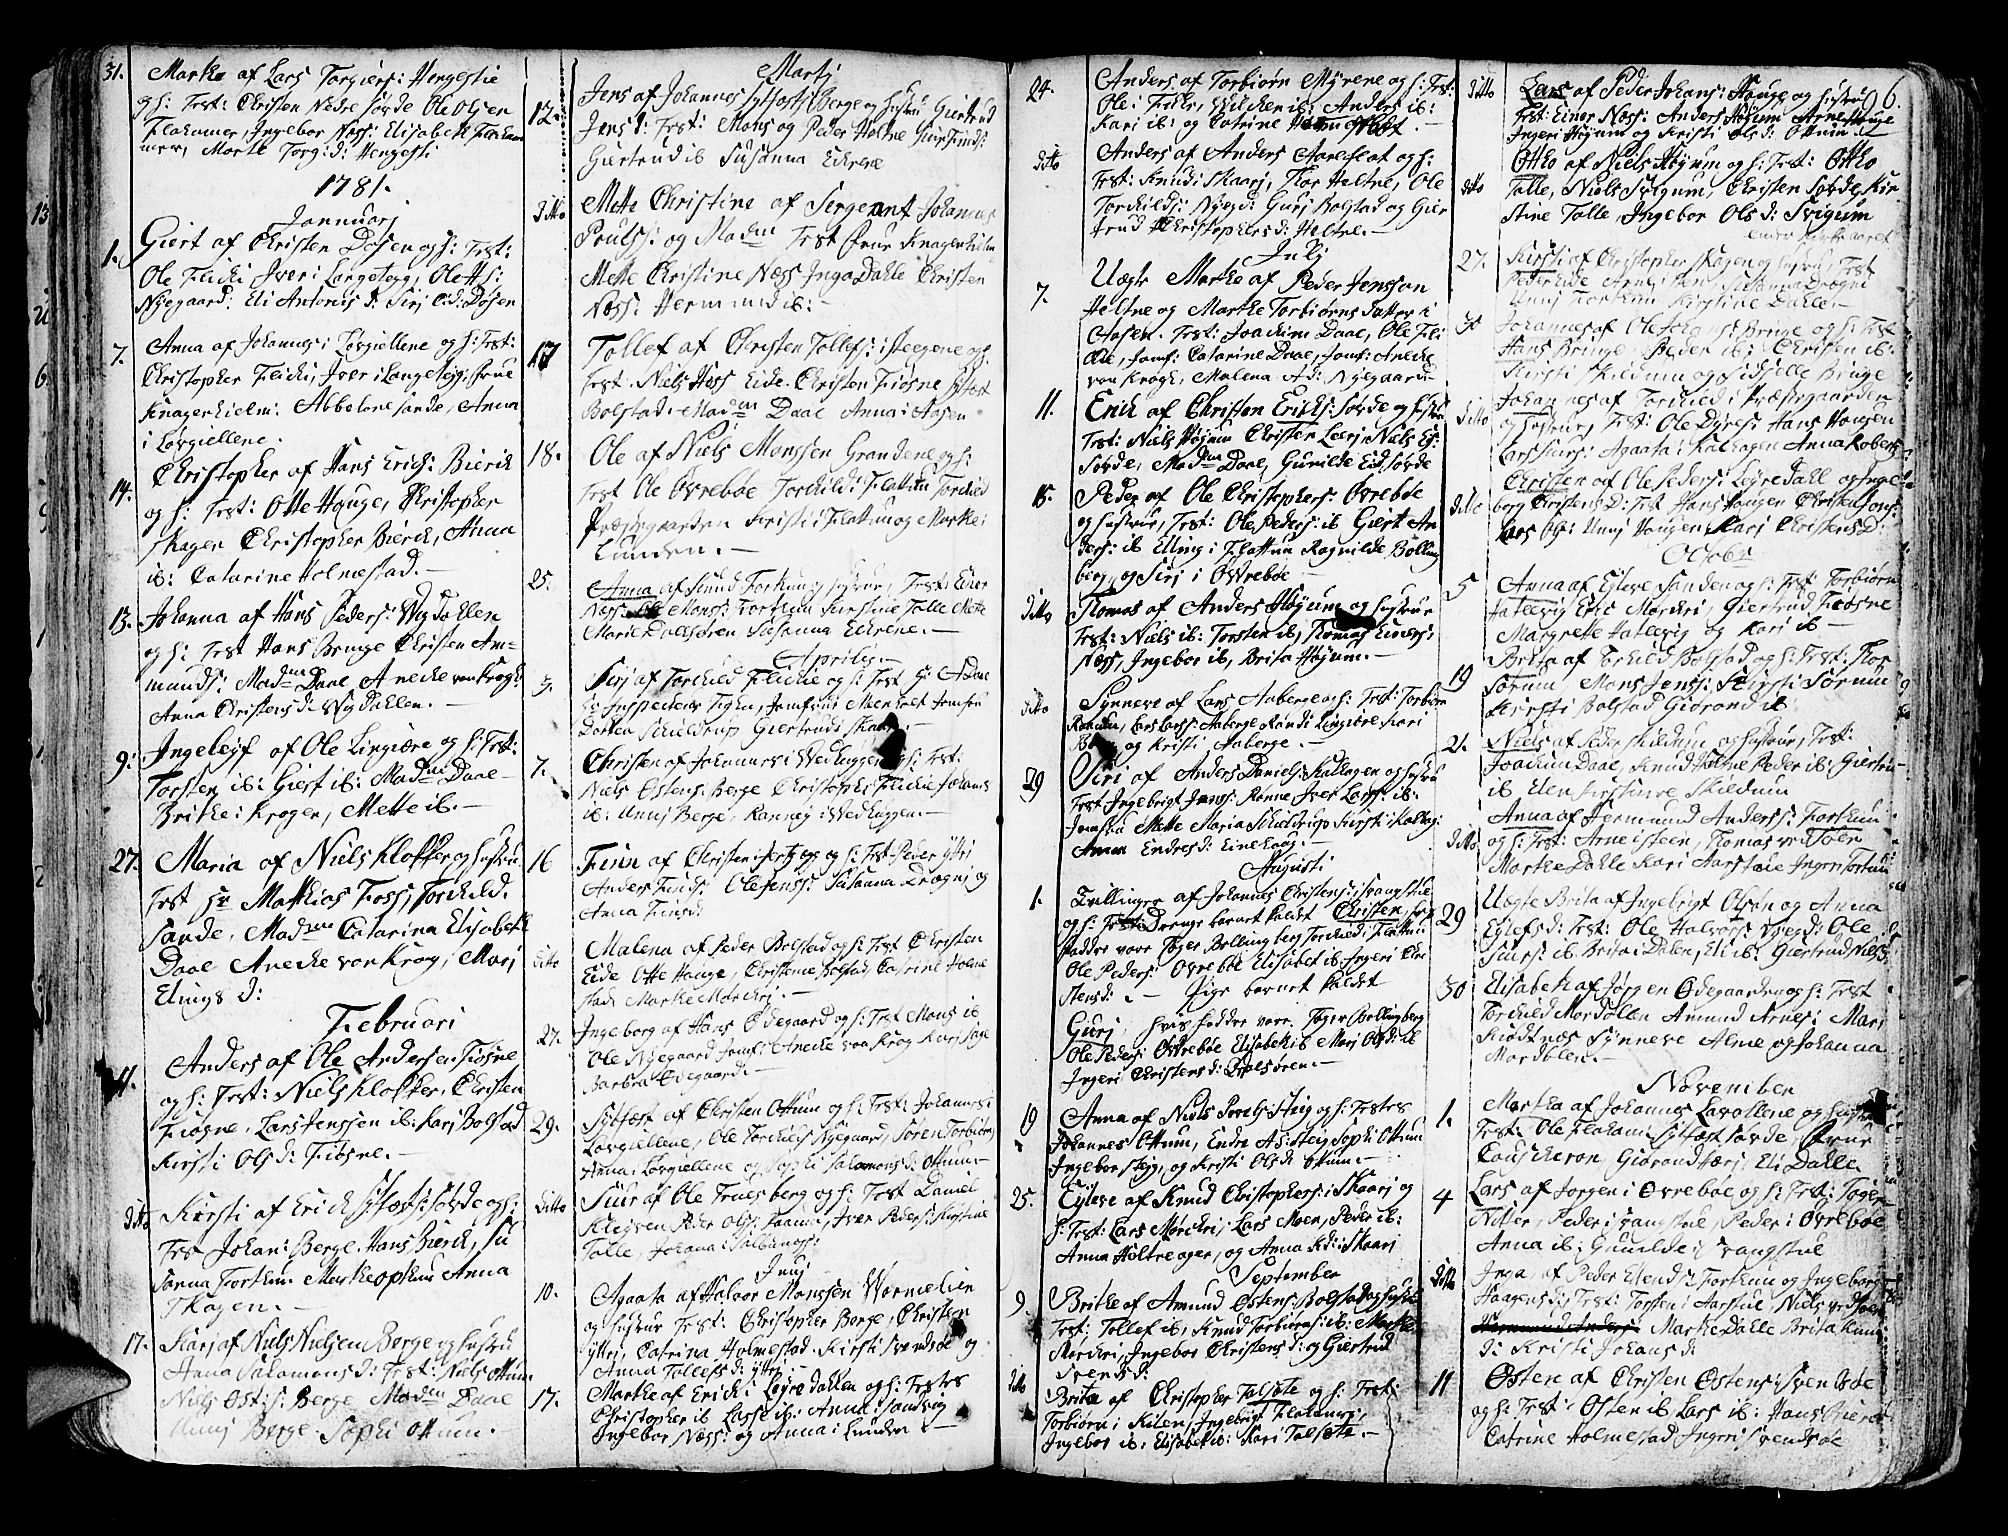 31. Marthe af Lars Torgiers: Hengestie
og h: Test: Christen Nedre Sørde Ole Olsen
Flahamer, Ingebor Næss: Elisabeth Flaham
mer, Marte Torg: d: Hengesti
1781.
Januarj
1. Giert af Christen Døsen og h: Test:
Ole Flicki Iver i Langetegg, Ole H:
Nyegaard: Eli Antonis d: Sirj C: d: Døsen
7. Anna af Johannes i Lørgiellene og h: Test:
Christopher Flicki, Iver i Langetegg, Frue
Knagenhielm: Abbelone Sande, Anna
i Lørgiellene.
14. Christopher af Hans Erichs: Bierch
og h: Test: Otte Hauge, Christopher
Skagen Christopher Bierch, Anna
ib: Catarine Holmestad.—
13. Johanna af Hans Peders: Wydahlen
og h: Test Hans Bruge Christen Am-
munds: Madm Daae Anecke von Krogh
Anna Christens d: Wydahlen.—
9: Ingeleyf af Ole Lingiære og h: Test:
Torsten ib: Giert ib: Madme Daae—
Brithe i Krogen, Mette ib.—
27. Maria af Niels Klokker og hustru
Test Hr Mathias Foss, Torchild.
Sande. Madme Catarina Elisabeth
Daae Anecke von Krog, Marj
Elings d:
Februari
11. Anders af Ole Andersen Fiøsne
og h: Test: Niels Klokker. Christen
Fiøsne. Lars Jenssen ib: Karj Bolstad
Kirsti Ols d: Fiøsne.—
ditto Kirsti af Erich Sylfest: Sørde og h:
Test Johan: Berge. Hans Bierch, Su
sanna Forthun Marthe opthun Anna
Skagen.—
17. Karj af Niels Nielsen Berge og hustru
Anna Salamons d: Test: Niels Ottum
Niels Øst: s: Berge Madm Daae
Unnj Berge. Sophi Ottum.—
Martj
12. Jens af Johannes Sylfests: Berge og hustru Giertrud
Jens d: Test: Mons og Peder Holtne
Giertrud ib Susanna Echrene
ditto Mette Christine af Sergeant Johannes
Pouls: og Madm Test Frue Knagenhielm
Mette Christine Næss Inga Dahle Christen
Næss: Hermund ib:
17 Tollef af Christen Tollefs: i Steegene og h:
Test. Niels Hess Eide. Christen Fiøsne Sylfest
Bolstad. Madm Daae Anna i Aasen
18. Ole af Niels Monssen Grandene og h:
Test Ole Øvrebøe Torchild i Flattum Torchild
Præstegaarden Kirsti i Flattum og Marthe i
Lunden.—
25. Anna af Knud Forthun og hustrue, Test: Einer
Næss Ole Mons: Forthun Kirstine Tolle Mette
Marie Dalsøren Susanna Echrene.—
Aprilis.—
5. Sirj af Torchild Flicke og h: Test G: A Daae
Giertrud Skaar
7. Christen af Johannes i Wedhuggen og h: Test:
Niels Østens: Berge Christopher Flicke Johannes
ib: Unnj Berge, Rannej i Wedhuggen.—
16 Finn af Christen i Hertzegg og h: Test Peder Yttri
Anders Finds: Ole Jenss: Susanna Drægni og
Anna Finsd:
ditto Malena af Peder Bolstad og h: Test Christen
Eide Otte Hauge, Christense Bolstad, Catrine Holme
stad: Marthe Mørchrj.—
27. Ingeborg af Hans Ødegaard og h: Test Mons ib
Ole Nyegaard Jomf: Anecke von Krog Karj Hage
Barbra Ødegaard.—
29. Sylfest af Christen Ottum og h: Test: Johannes i
Lørgiellene, Ole Torchils: Nyegaard, Søren Torbiørns
Anna i Lørgiellene og Sophi Salamons d: Ottum.—
ditto Siur af Ole Truesberg og h: Test Daniel
Klegven Peder Ols: Faaum, Iver Peders: Kirstine
Tolle, Johana i Salbunoss:
Junj
10. Agaata af Halvor Monssen Wormelien
og hustrue Test: Christopher Berge, Christen
Yttri, Catrina Holmestad. Kirsti Svendsøe og
Anna Tollefs d: Yttri.—
17. Marthe af Erich i Løyredahlen og h: Testes
Christopher ib Lasse ib: Anna i Sandvig
Ingebor Næss: og Anna i Lunden.—
24. Anders af Torbiørn Myrene og h: Test:
Ole i Fiske, Wilchen ib: Anders ib:
Karj ib: og Catrine
ditto Anders af Anders Aarethun og h:
Test: Knud i Skaarj, Thor Heltne, Ole
Torchilds: Nyegd: Gurj Bolstad og Gier
trud Christophers d: Heltne.—
Julj
7. Uægte Marthe af Peder Jensson
Heltne og Marthe Torbiørns datter i
Aasen. Test: Joachim Daae, Ole Fli
cke, Jomf: Catarine Daae, Jomf: Anecke
von Krogh, Malena A d: Nyegaard.
11. Erich af Christen Erichs: Sørde og hustru
Test: Niels Høyum Christen Leerj Niels E:
Sørde, Madm Daae, Gunilde Eid Sørde
15. Peder af Ole Christophers: Øvrebøe
og hustrue, Test: Ole Peders: ib Giert An
ders: ib Elling i Flattum Ragnilde Bolling
berg, og Sirj i Øvrebøe—
ditto Thomas af Anders Høyum og hustrue
Test: Niels ib: Torsten ib, Thomas Einers:
Næss, Ingebor ib, Brita Høyum.—
ditto Synneve af Lars Aaberge og h: Test: Torbiørn
Lars Lars: Aaberge Randi Lingiære Kari
og Kristi Aaberge.—
29 Siri af Anders Daniels: Kalhagen og hustru
Test Ingebrigt Jens: Rønne Iver Lars: ib:
Jomfru Mette Maria Schieldrup Kirsti Kalhag:
Anna Endres d: Einehoug.—
Augusti
1. Tvillinger af Johannes Christens: i Svangstue
og h: Test: Drenge barnet kaldet Christen, hvis
fadder vare Tøger Bollingberg Torchild i Flattum
Ole Peders: Øvrebøe Elisabet ib Ingeri Chr
stens d:.— Pige barnet kaldet
Gurj, hvis faddre vare, Tøger Bollingberg
Ole Peders: Øvrebøe Elisabeth ib Marj Ols d: ib
Ingeri Christens d: Dalsøren.—
19 Anna af Niels Povels: Steig og h: Testes
Johannes Ottum, Endre A: s: Steig Sophi Ottum
Ingebor Steig, og Kristi Ols d: Ottum.—
25. Eyleve af Knud Christophers: i Skaarj og
h: Test: Lars Mørchri, Lars Moen, Peder ib:
Anna Holtreager, og Anna K d: i Skaarj
September
9. Brithe af Amund Østens: Bolstad og hustru
Test: Tollef ib, Knud Torbiørns: ib: Marthe
Mørchri, Ingebor Christens d: og Giertrud
Svends d:
ditto Brita af Christopher Talsøte og h: Test:
Torbiørn i Kilen, Ingebrigt Flahamer,
Ingebor ib: Elisabeth ib: Kari Talsøte.—
96.
ditto Lars af Peder Johans: Hauge og hustru
Test: Einer Næss: Anders Høyum Arne Hauge
Ingeri Høyum og Kristi Ols d: Ottum
ditto Ottho af Niels Høyum og h: Test: Otto
Tolle, Niels Svegum, Christen Sørde, Kir
stine Tolle, Ingebor Ols d: Svegum
27. Kirsti af Christopher Skagen og hustru, Test
Peder Eide Arne i Susanna Drægni
Unnj Forthun Kirstine Dahle—
30 Johannes af Ole Johans: Bruge og h: Test
Hans Bruge Peder ib: Christen ib:
Kirsti Skildum og Sidselle Bruge
ditto Johannes af Torchild i Præstegaarden
og hustrue, Test: Ole Dyres: Hans Hougen
Lars Siurs: Agaata i Kalhagen Anna Roberts
ditto Christen af Ole Peders: Løyredahl og Inge
borg Christens d: Test Hans Hougen Christen Jons:
Lars Ols: Unnj Hougen Karj Christens d:
Octobr
5 Anna af Eyleve Sanden og h: Test: Torbiørn
Hatlevig Eric Mørchri, Giertrud Fiøsne
Margrethe Hatlevig og Karj ib—
19 Brita af Torchild Bolstad og h: Test: Thor
Sørum, Mons Jenss: Kirsti Sørum
Kirsti Bolstad Gidrand ib:
21. Niels af Peder Skildum og hustrue, Test:
Joachim Daae, Knud Holtne Peder ib: Giertru
ib Elen Kirstine Skildum
ditto Anna af Hermund Anders: Forthun
og h: Test: Arne i Steen, Thomas ved Søen
Marthe Dahle Kari Aarstue Ingeri Forthun
29 Uægte Brita af Ingebrigt Olsøn og Anna
Eylefs d: Test: Ole Halvors: Nyegd: Ole
Siurs: ib Brita i Dalen, Eli ib: Giertrud Niels d:
30 Elisabeth af Jørgen Ødegaarden og h: Test
Torchild Mordølen Amund Arnes: Mari
Kiødtnæs Synneve Alme og Johanna
Mordølen.—
November
1. Martha af Johannes Lavollene og hustrue
Test: Ole Flaham: Sylfest Sørde, Frue
Causcheron, Giørand Hærj, Eli Dahle.
4 Lars af Jørgen i Øvrebøe og h: Test: Tøger
Nitter, Peder i Svangstue, Peder i Øvrebøe
Anna ib: Gunilde i Svangstue
ditto Inga, af Peder Elends: Forthun og Ingeborg
Haagens d: Test: Torsten i Aarstue, Niels ved Søen
Marthe Dahle Brita Knud
d: Kristi Johans d:
11 Østen af Christen Østens: Svendsøe
og h: Test: Østen ib Lars ib: Hans Bierch
Catrine Holmestad Ingeri Svendsøe